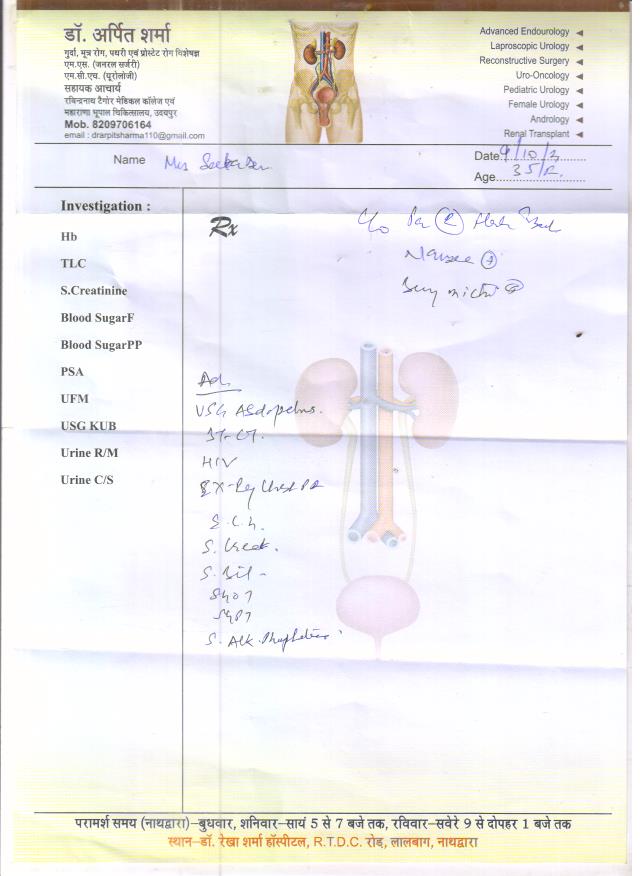 डॉ. अर्पित शर्मा
गुर्दा, मूत्र रोग, पथरी एवं प्रोस्टेट रोग विशेषज्ञ
एम.एस. (जनरल सर्जरी)
एम.सी.एच. (यूरोलोजी)
सहायक आचार्य
रविन्द्रनाथ टैगोर मेडिकल कॉलेज एवं
महाराणा भूपाल चिकित्सालय, उदयपुर
Mob. 8209706164
email : drarpitsharma110@gmail.com
Advanced Endourology
Laproscopic Urology
Reconstructive Surgery
Uro-Oncology
Pediatric Urology
Female Urology
Andrology
Renal Transplant
Name Mrs
Date. 9/10/2
Age. 35/F.
Investigation :
Hb
TLC
S.Creatinine
Blood SugarF
Blood SugarPP
PSA
UFM
USG KUB
Urine R/M
Urine C/S
Rx
C/o
Nausea +
Adv.
USG Abdo-pelvis.
BT-CT.
HIV
X-Ray Chest PA
E.C.G.
S. Creat.
S. Bil -
SGOT
SGPT
S. Alk. Phosphatase
परामर्श समय (नाथद्वारा)–बुधवार, शनिवार–सायं 5 से 7 बजे तक, रविवार–सवेरे 9 से दोपहर 1 बजे तक
स्थान–डॉ. रेखा शर्मा हॉस्पीटल, R.T.D.C. रोड़, लालबाग, नाथद्वारा